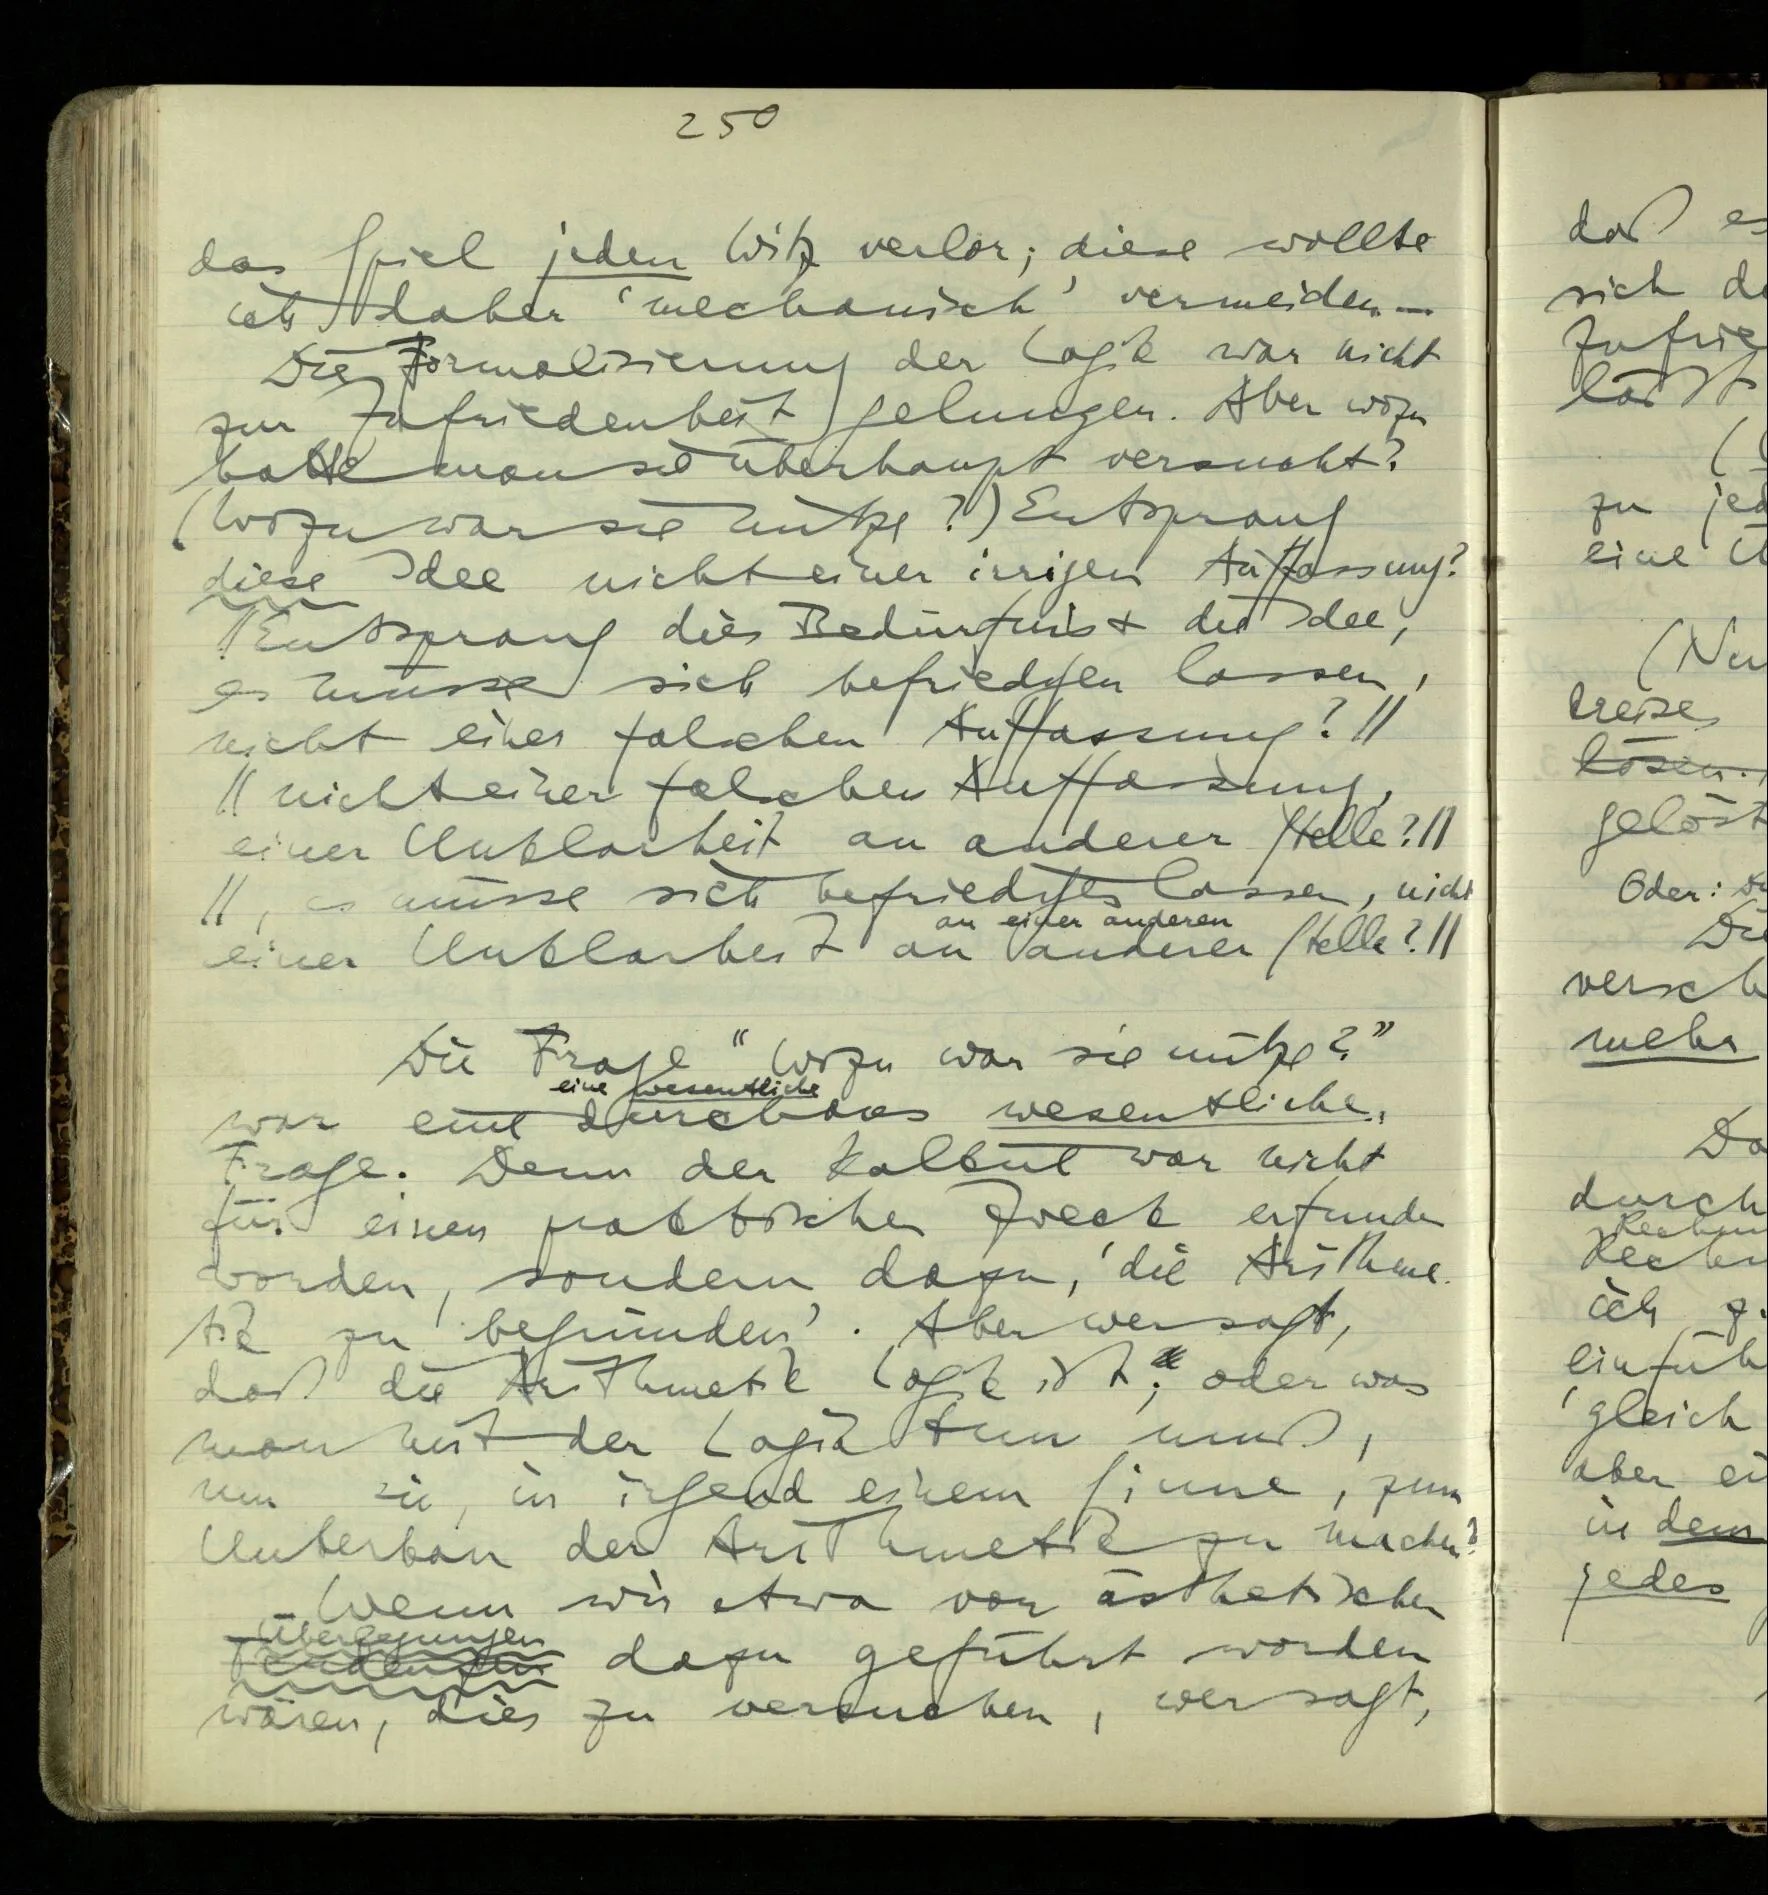 250
das Spiel jeden Witz verlor; diese wollte
ich daher ‘mechanisch’ vermeiden. —
Die Formalisierung der Logik war nicht
zur Zufriedenheit gelungen. Aber wozu
hatte man sie überhaupt versucht?
(Wozu war sie nütze?) Entsprang
diese Idee nicht einer irrigen Auffassung?
//Entsprang dies Bedürfnis & die Idee,
es müsse sich befriedigen lassen,
nicht einer falschen Auffassung?//
//nicht einer falschen Auffassung,
einer Unklarheit an anderer Stelle?//
//, es müsse sich befriedigen lassen, nicht
an einer anderen
einer Unklarheit an anderer Stelle?//
Die Frage “Wozu war sie nütze?”
eine wesentliche
war eine durchaus wesentliche.
Frage. Denn der Kalkül war nicht
für einen praktischen Zweck erfunden
worden, sondern dazu, ‘die Arithme-
tik zu begründen’. Aber wer sagt,
daß die Arithmetik Logik ist; oder was
man mit der Logik tun muß,
um sie, in irgend einem Sinne, zum
Unterbau der Arithmetik zu machen?
Wenn wir etwa von ästhetischen
Überlegungen
Tendenzen dazu geführt worden
wären, dies zu versuchen, wer sagt,
daß es
sich
läßt
zu
eine
(Nu
Kreise
lösen.
gelöst
Oder:
Die
versch
mehr
Da
durch
Rechn
ich z.
einfüh
‘gleich
aber ei
in dem
jedes